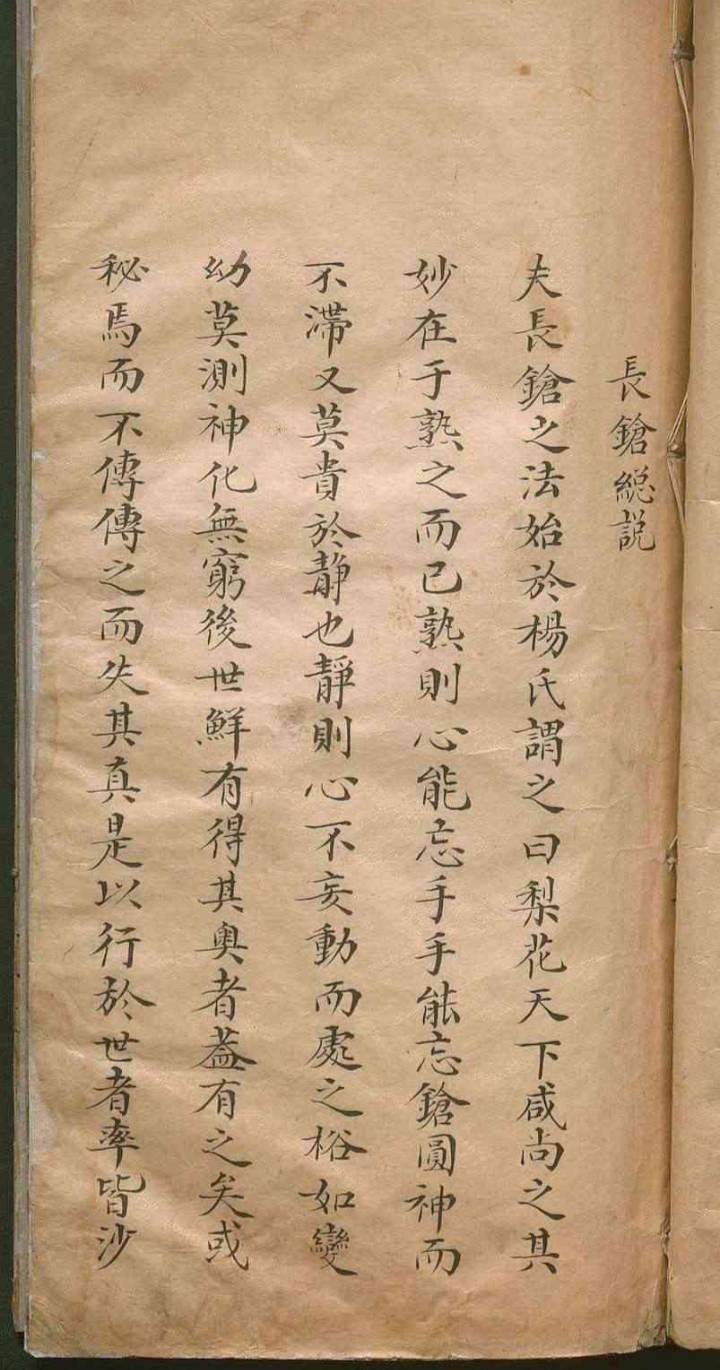 長鎗総説
夫長鎗之法始於楊氏謂之曰梨花天下咸尚之其
妙在于熟之而已熟則心能忘手手能忘鎗圓神而
不滯又莫貴於靜也靜則心不妄動而處之裕如變
幼莫測神化無窮後世鮮有得其奧者葢有之矣或
秘焉而不傳傳之而失其真是以行於世者率皆沙